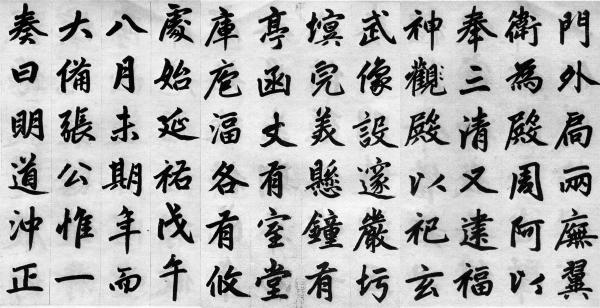 門外局兩廡翼
衛為殿周阿以
奉三清又建福
神觀殿以祀玄
武像設邃嚴圬
塓完美懸鐘有
亭函丈有室堂
庫庖湢各有攸
處始延祐戊午
八月未期年而
大備張公惟一
奏曰明道沖正